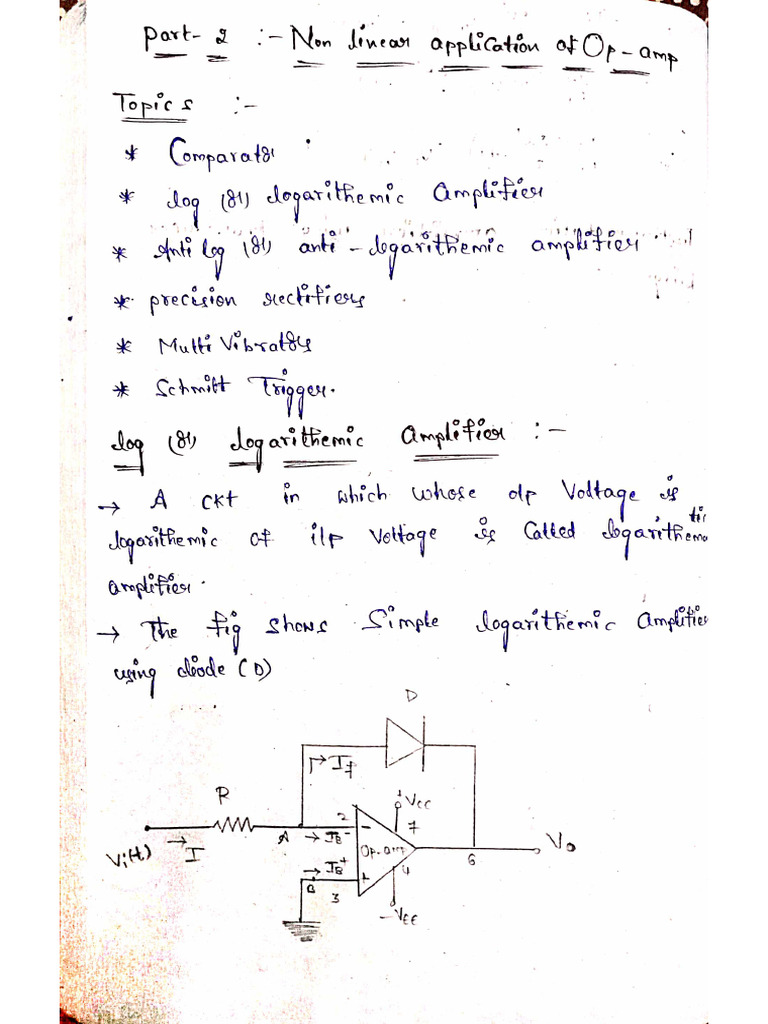 Part-2 :- Non linear application of Op-amp
Topics :-
* Comparator
* log (or) logarithemic Amplifier
* Anti log (or) anti-logarithemic amplifier
* precision rectifiers
* Multi Vibrators
* Schmitt Trigger.
log (or) logarithemic Amplifier :-
→ A ckt in which whose o/p Voltage is
logarithemic of i/p voltage is Called logarithema
tic
amplifier.
→ The fig shows Simple logarithemic Amplifier
using diode (D)
D
→ If
R
+Vcc
2
7
A
→ IB-
-
Vo
Vi(t)
→ I
Op-amp
6
→ IB+
B
+
4
3
-VEE